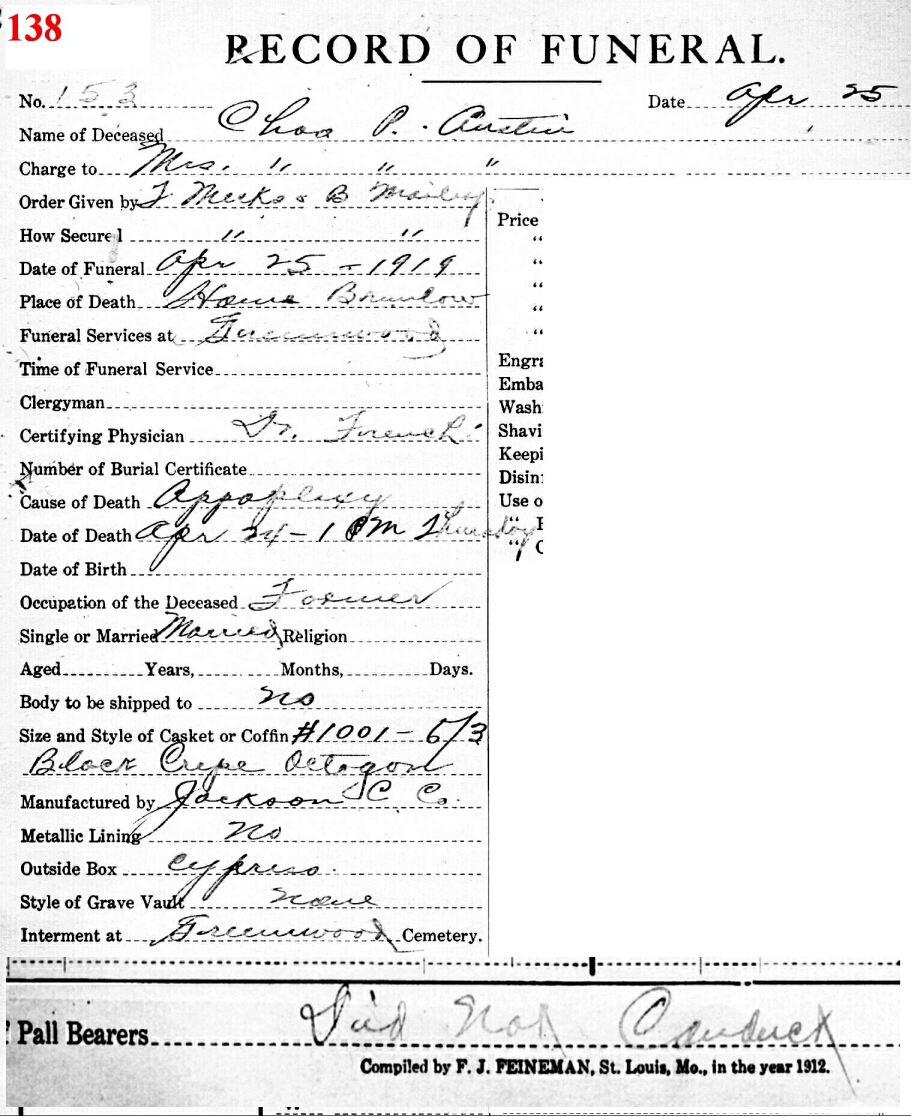 138
RECORD OF FUNERAL.
No. 153 Date Apr 25
Name of Deceased Chas P. Austin
Charge to Mrs. " " "
Order Given by F Meeks & B
How Secured " "
Date of Funeral Apr 25 - 1919
Place of Death Home
Funeral Services at Greenwood
Time of Funeral Service
Clergyman
Certifying Physician Dr. French
Number of Burial Certificate
Cause of Death Appoplexy
Date of Death Apr 24 - 1 PM Thursday
Date of Birth
Occupation of the Deceased Farmer
Single or Married Married Religion
Aged Years, Months, Days.
Body to be shipped to no
Size and Style of Casket or Coffin #1001 - 6/3
Black Crepe Octogon
Manufactured by Jackson C Co.
Metallic Lining No
Outside Box cypress
Style of Grave Vault none
Interment at Greenwood Cemetery.
Price
"
"
"
"
"
Engra
Emba
Wash
Shavi
Keepi
Disin
Use o
" F
" C
Pall Bearers Did Not Conduct
Compiled by F. J. FEINEMAN, St. Louis, Mo., in the year 1912.